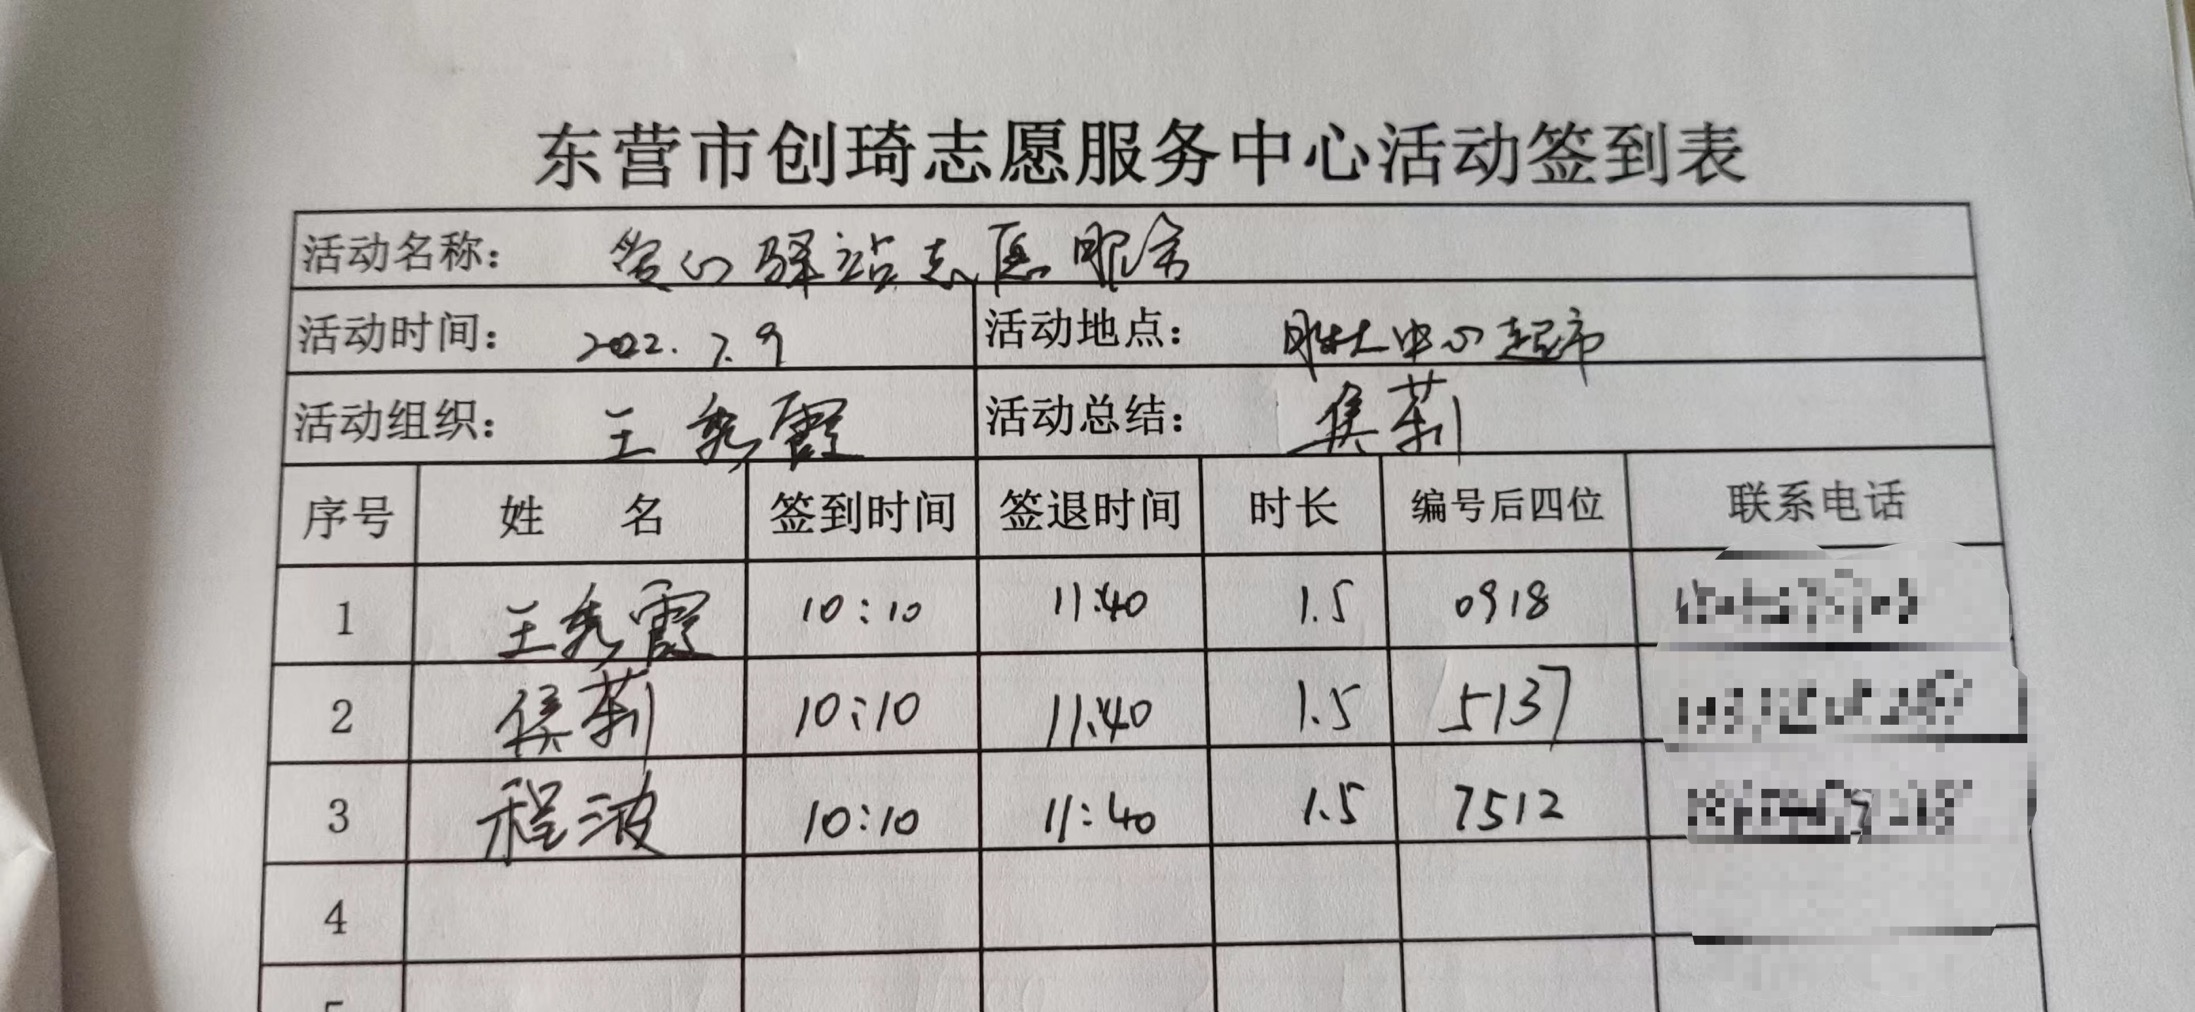 东营市创琦志愿服务中心活动签到表
活动名称： 爱心驿站志愿服务
活动时间： 2022.7.9 活动地点： 胜大中心超市
活动组织： 王秀霞 活动总结： 侯莉
序号 姓 名 签到时间 签退时间 时长 编号后四位 联系电话
1 王秀霞 10:10 11:40 1.5 0918
2 侯莉 10:10 11:40 1.5 5137
3 程波 10:10 11:40 1.5 7512
4